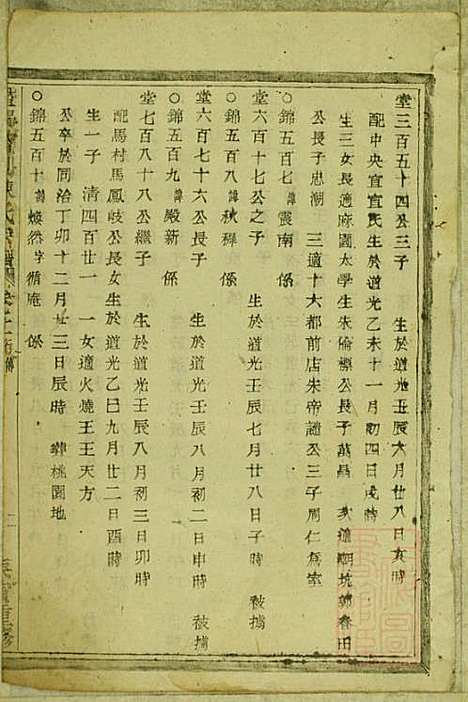 堂三百五十四公三子 生於道光壬辰六月廿八日亥時
配中央宜宜氏生於道光乙未十一月初四日戌時
生三女長適麻園太學生朱倫 公長子萬昌 次適 坑 春田
公長子忠潮 三適十六都前店朱帝 公三子周仁爲室
○錦五百七諱震南係
堂六百十七公之子 生於道光壬辰七月廿八日子時 被擄
○錦五百八諱秋 係
堂六百七十六公長子 生於道光壬辰八月初二日申時 被擄
○錦五百九諱殿新係
堂七百八十八公繼子 生於道光壬辰八月初三日卯時
配馬村馬鳳岐公長女生於道光乙巳九月廿二日酉時
生一子 清四百廿一 一女適火燒王王天方
公卒於同治丁卯十二月廿三日辰時 葬桃園地
○錦五百十諱煥然字循庵係